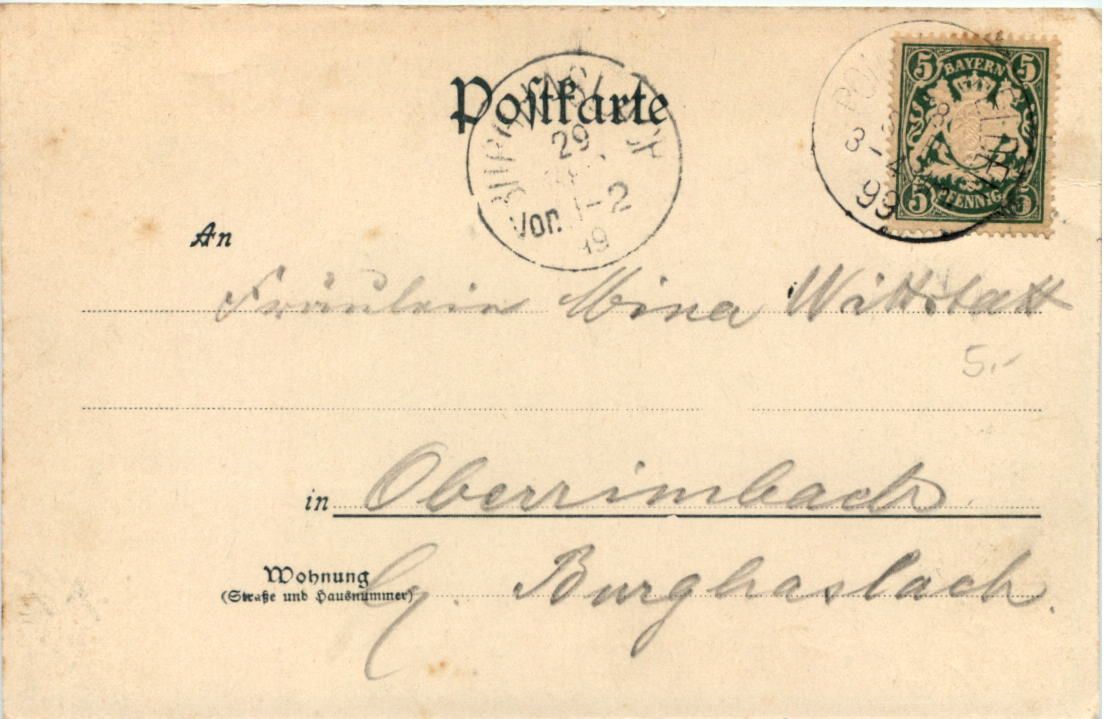 Postkarte
29
Vor. 1-2
5 BAYERN 5
3-4
99
5 PFENNIG 5
An
Fräulein Mina Wittstatt
5.-
in Oberrimbach
Wohnung
(Straße und Hausnummer)
Burghaslach.